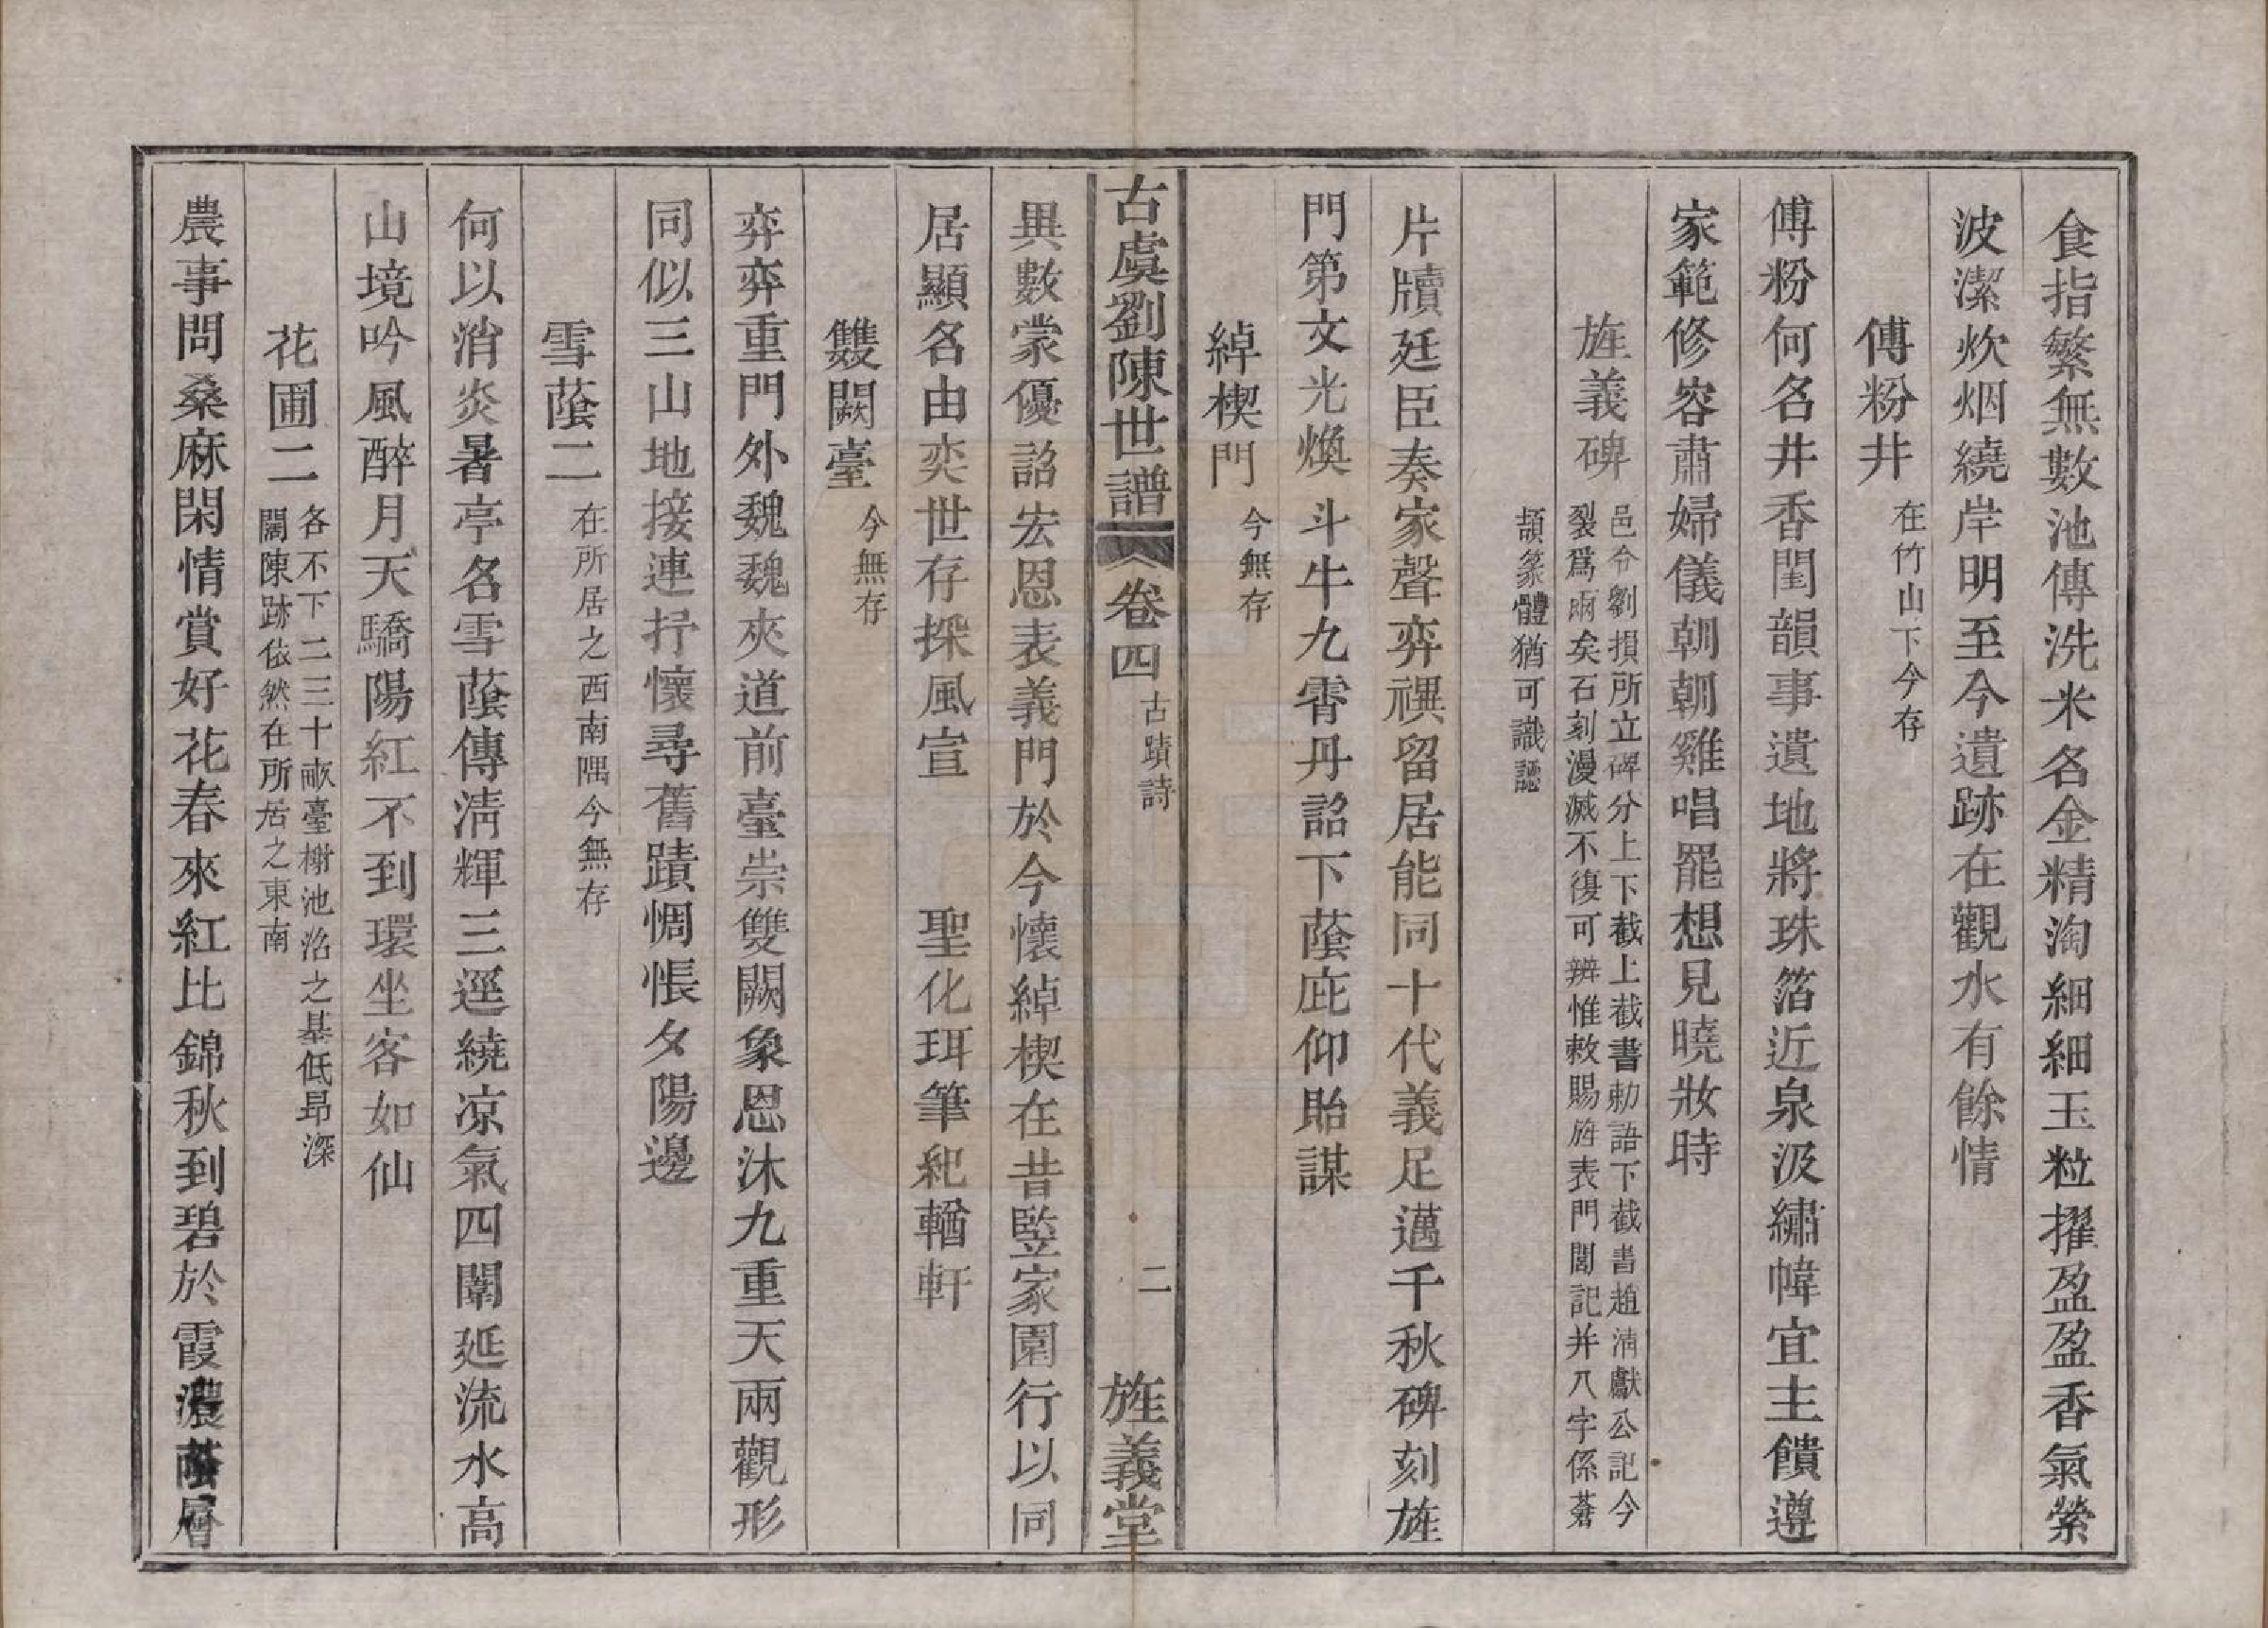 食指繁無數池傳洗米名金精淘細細玉粒擢盈盈香氣縈
波潔炊烟繞岸明至今遺跡在觀水有餘情
傅粉井 在竹山下今存
傅粉何名井香閨韻事遺地將珠箔近泉汲繡幃宜主饋遵
家範修容肅婦儀朝朝雞唱罷想見曉妝時
旌義碑 邑令劉損所立碑分上下截上截書勅語下截書趙清獻公記今
裂爲兩矣石刻漫滅不復可辨惟敕賜旌表門閭記并八字係蒼
頡篆體猶可識認
片牘廷臣奏家聲弈禩留居能同十代義足邁千秋碑刻旌
門第文光煥斗牛九霄丹詔下蔭庇仰貽謀
綽楔門 今無存
古虞劉陳世譜 卷四 古蹟詩 二 旌義堂
異數蒙優詔宏恩表義門於今懷綽楔在昔監家園行以同
居顯名由奕世存採風宣 聖化珥筆紀輶軒
雙闕臺 今無存
弈弈重門外魏魏夾道前臺崇雙闕象恩沐九重天兩觀形
同似三山地接連抒懷尋舊蹟惆悵夕陽邊
雪蔭二 在所居之西南隅今無存
何以消炎暑亭名雪蔭傳淸輝三逕繞凉氣四闈延流水高
山境吟風醉月天驕陽紅不到環坐客如仙
花圃二 各不下二三十畝臺榭池沼之基低昂深
闊陳跡依然在所居之東南
農事問桑麻閑情賞好花春來紅比錦秋到碧於霞濃蔭層